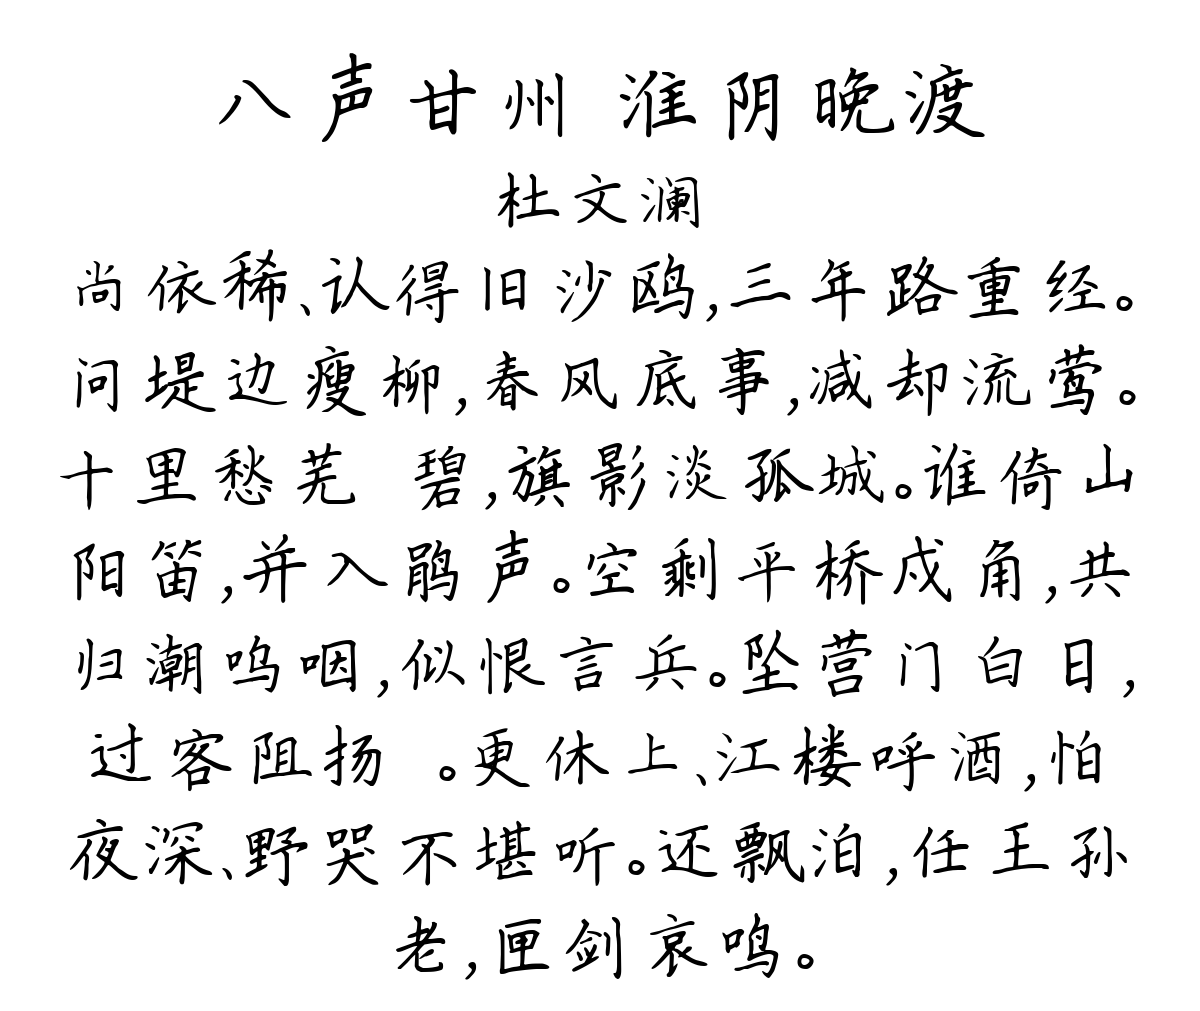 八声甘州 淮阴晚渡
杜文澜
尚依稀、认得旧沙鸥,三年路重经。
问堤边瘦柳,春风底事,减却流莺。
十里愁芜 碧,旗影淡孤城。谁倚山
阳笛,并入鹃声。空剩平桥戍角,共
归潮呜咽,似恨言兵。坠营门白日,
过客阻扬 。更休上、江楼呼酒,怕
夜深、野哭不堪听。还飘泊,任王孙
老,匣剑哀鸣。